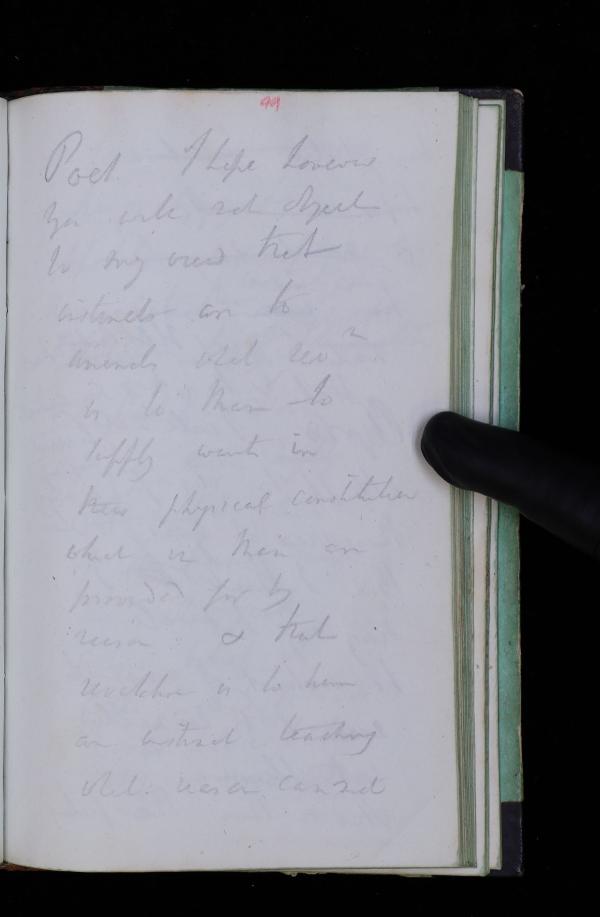 99
Poet I hope however
you will not object
to my creed that
instincts are to
animals what rea^n
is to Man to
supply wants in
their physical constitution
which in Man are
provided for by
reason & that
revelation is to him
an instinct teaching
what reason cannot